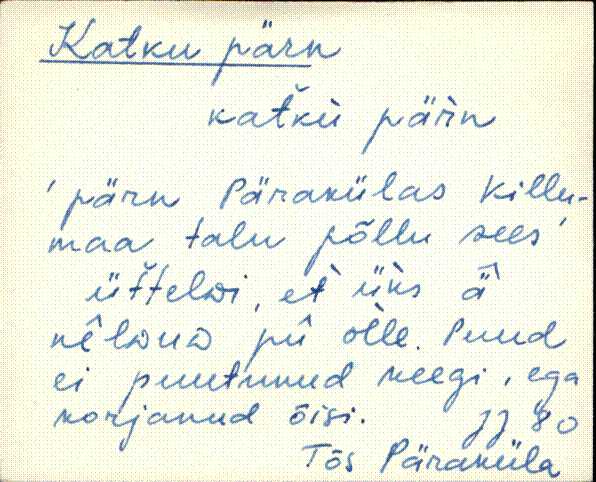 Katku pärn
katku pärn
'pärn Päraküla​s Killu-
maa talu põllu sees'
üttelwi, et üks ä
nêlwuw pü olle. Puud
ei puutunud keegi, ega
korjanud õisi. JJ 80
Tõs Päraküla